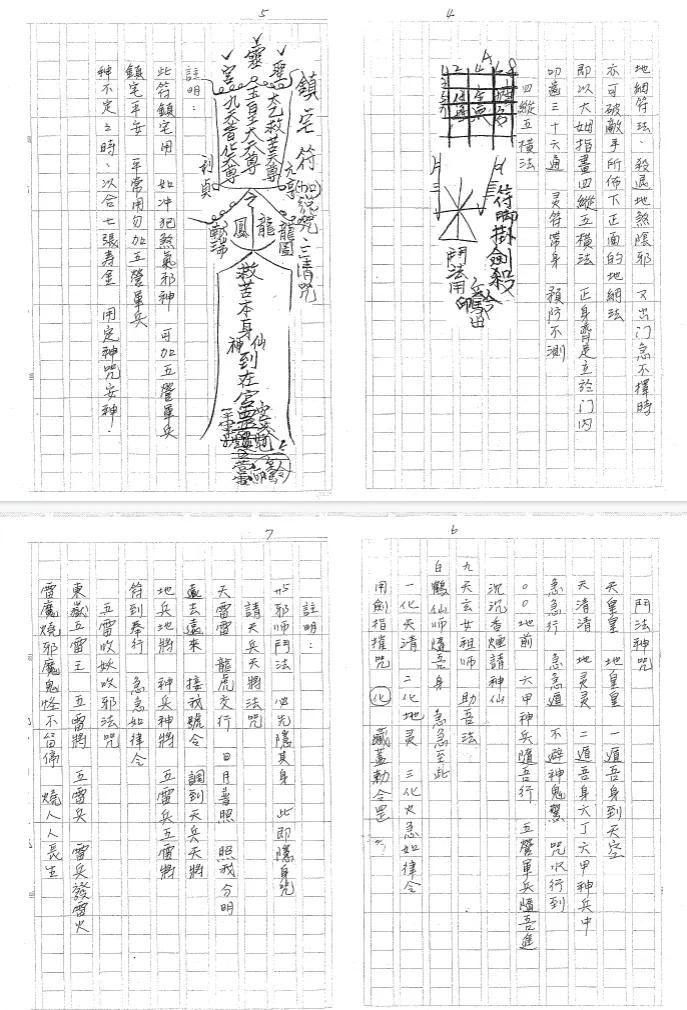 4
地網符法．殺退地煞陰邪 又出门急不擇時
亦可破敵手所佈下正面的地網法
即以大姆指畫四縱五橫法 正身齊足立於门內
叩齒三十六通 灵符帶身 預防不測
四縱五橫法
符脚掛劍殺
鬥法用
5
鎮宅符
(加)說咒：三清咒
靈
太乙救苦天尊
玉皇大天尊
九天普化天尊
元亨
利貞
龍圖
龍
鳳
救苦本身
神仙到在宮
註明：
此符鎮宅用 如冲犯煞氣邪神 可加五營軍兵
鎮宅平安 平常用勿加五營軍兵
神不定之時、以合七張壽金 用定神咒安神．
6
鬥法神咒
天皇皇 地皇皇 一遁吾身到天空
天清清 地灵灵 二遁吾身六丁六甲神兵中
急急行 急急遁 不避神鬼驚 咒水行到
〇〇地前 六甲神兵隨吾行 五營軍兵隨吾進
沉沉香煙請神仙
九天玄女祖师 助吾法
白鶴仙师隨吾身 急急至此
一化天清 二化地灵 三化火急如律令
用劍指揮咒 化 藏蓋勅令罡
7
註明：
与邪师鬥法 必先隱其身 此即隱身咒
請天兵天將法咒
天雷雷 龍虎交行 日月普照 照我分明
遠去遠來 接我號令 調到天兵天將
地兵地將 神兵神將 五雷兵五雷將
符到奉行 急急如律令
五雷收妖收邪法咒
東嶽五雷王 五雷將 五雷兵 雷兵發雷火
雷魔燒邪魔鬼怪不留停 燒人人長生